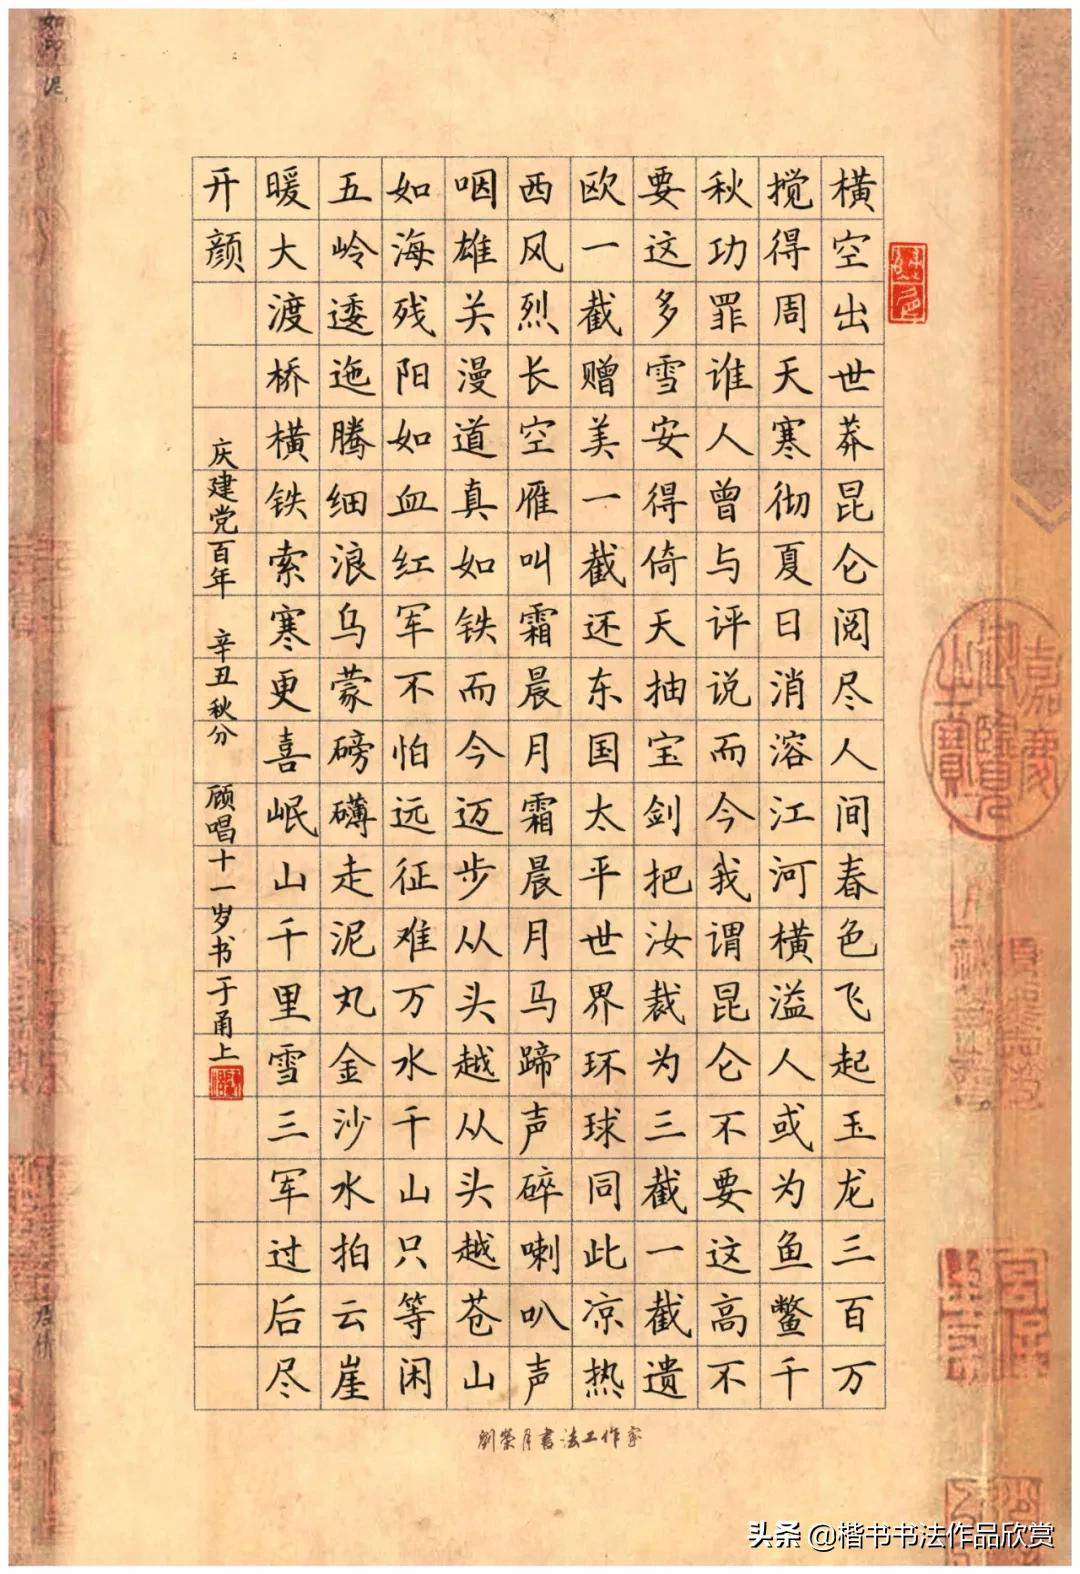 横空出世莽昆仑阅尽人间春色飞起玉龙三百万
搅得周天寒彻夏日消溶江河横溢人或为鱼鳖千
秋功罪谁人曾与评说而今我谓昆仑不要这高不
要这多雪安得倚天抽宝剑把汝裁为三截一截遗
欧一截赠美一截还东国太平世界环球同此凉热
西风烈长空雁叫霜晨月霜晨月马蹄声碎喇叭声
咽雄关漫道真如铁而今迈步从头越从头越苍山
如海残阳如血红军不怕远征难万水千山只等闲
五岭逶迤腾细浪乌蒙磅礴走泥丸金沙水拍云崖
暖大渡桥横铁索寒更喜岷山千里雪三军过后尽
开颜
庆建党百年 辛丑秋分 顾唱十一岁书于甬上
劉榮月書法工作室
嘉慶御覽之寶
头条 @楷书书法作品欣赏